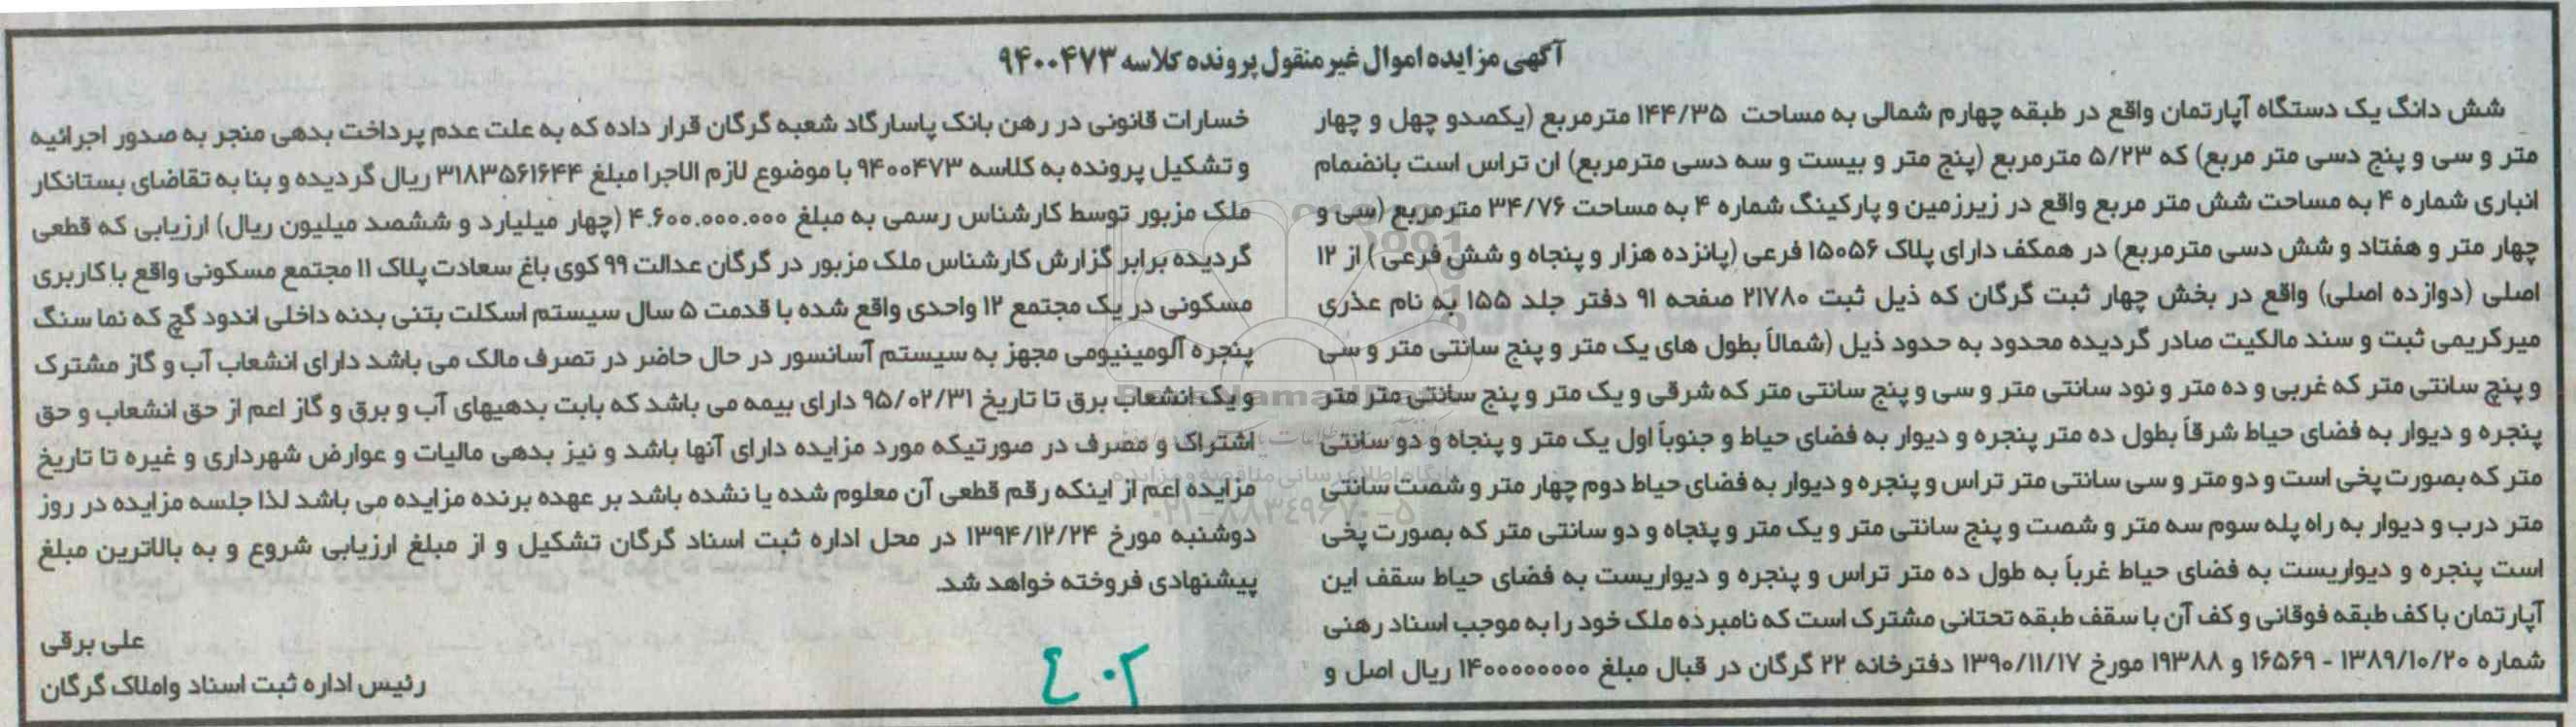 آگهی مزایده اموال غیر منقول پرونده کلاسه ۹۴۰۰۴۷۳
شش دانگ یک دستگاه آپارتمان واقع در طبقه چهارم شمالی به مساحت ۱۴۴/۳۵ مترمربع (یکصدو چهل و چهار
متر و سی و پنج دسی متر مربع) که ۵/۲۳ مترمربع (پنج متر و بیست و سه دسی مترمربع) ان تراس است بانضمام
انباری شماره ۴ به مساحت شش متر مربع واقع در زیرزمین و پارکینگ شماره ۴ به مساحت ۳۴/۷۶ مترمربع (سی و
چهار متر و هفتاد و شش دسی مترمربع) در همکف دارای پلاک ۱۵۰۵۶ فرعی (پانزده هزار و پنجاه و شش فرعی) از ۱۲
اصلی (دوازده اصلی) واقع در بخش چهار ثبت گرگان که ذیل ثبت ۲۱۷۸۰ صفحه ۹۱ دفتر جلد ۱۵۵ به نام عذری
میرکریمی ثبت و سند مالکیت صادر گردیده محدود به حدود ذیل (شمالاً بطول های یک متر و پنج سانتی متر و سی
و پنج سانتی متر که غربی و ده متر و نود سانتی متر و سی و پنج سانتی متر که شرقی و یک متر و پنج سانتی متر متر
پنجره و دیوار به فضای حیاط شرقاً بطول ده متر پنجره و دیوار به فضای حیاط و جنوباً اول یک متر و پنجاه و دو سانتی
متر که بصورت پخی است و دو متر و سی سانتی متر تراس و پنجره و دیوار به فضای حیاط دوم چهار متر و شصت سانتی
متر درب و دیوار به راه پله سوم سه متر و شصت و پنج سانتی متر و یک متر و پنجاه و دو سانتی متر که بصورت پخی
است پنجره و دیواریست به فضای حیاط غرباً به طول ده متر تراس و پنجره و دیواریست به فضای حیاط سقف این
آپارتمان با کف طبقه فوقانی و کف آن با سقف طبقه تحتانی مشترک است که نامبرده ملک خود را به موجب اسناد رهنی
شماره ۱۳۸۹/۱۰/۲۰ - ۱۶۵۶۹ و ۱۹۳۸۸ مورخ ۱۳۹۰/۱۱/۱۷ دفترخانه ۲۲ گرگان در قبال مبلغ ۱۴۰۰۰۰۰۰۰۰ ریال اصل و
خسارات قانونی در رهن بانک پاسارگاد شعبه گرگان قرار داده که به علت عدم پرداخت بدهی منجر به صدور اجرائیه
و تشکیل پرونده به کلاسه ۹۴۰۰۴۷۳ با موضوع لازم الاجرا مبلغ ۳۱۸۳۵۶۱۶۴۴ ریال گردیده و بنا به تقاضای بستانکار
ملک مزبور توسط کارشناس رسمی به مبلغ ۴.۶۰۰.۰۰۰.۰۰۰ (چهار میلیارد و ششصد میلیون ریال) ارزیابی که قطعی
گردیده برابر گزارش کارشناس ملک مزبور در گرگان عدالت ۹۹ کوی باغ سعادت پلاک ۱۱ مجتمع مسکونی واقع با کاربری
مسکونی در یک مجتمع ۱۲ واحدی واقع شده با قدمت ۵ سال سیستم اسکلت بتنی بدنه داخلی اندود گچ که نما سنگ
پنجره آلومینیومی مجهز به سیستم آسانسور در حال حاضر در تصرف مالک می باشد دارای انشعاب آب و گاز مشترک
و یک انشعاب برق تا تاریخ ۹۵/۰۲/۳۱ دارای بیمه می باشد که بابت بدهیهای آب و برق و گاز اعم از حق انشعاب و حق
اشتراک و مصرف در صورتیکه مورد مزایده دارای آنها باشد و نیز بدهی مالیات و عوارض شهرداری و غیره تا تاریخ
مزایده اعم از اینکه رقم قطعی آن معلوم شده یا نشده باشد بر عهده برنده مزایده می باشد لذا جلسه مزایده در روز
دوشنبه مورخ ۱۳۹۴/۱۲/۲۴ در محل اداره ثبت اسناد گرگان تشکیل و از مبلغ ارزیابی شروع و به بالاترین مبلغ
پیشنهادی فروخته خواهد شد.
علی برقی
رئیس اداره ثبت اسناد واملاک گرگان
۴۰۲
پایگاه اطلاع رسانی مناقصه و مزایده
۰۲۱-۸۸۳۴۹۶۷۰-۵